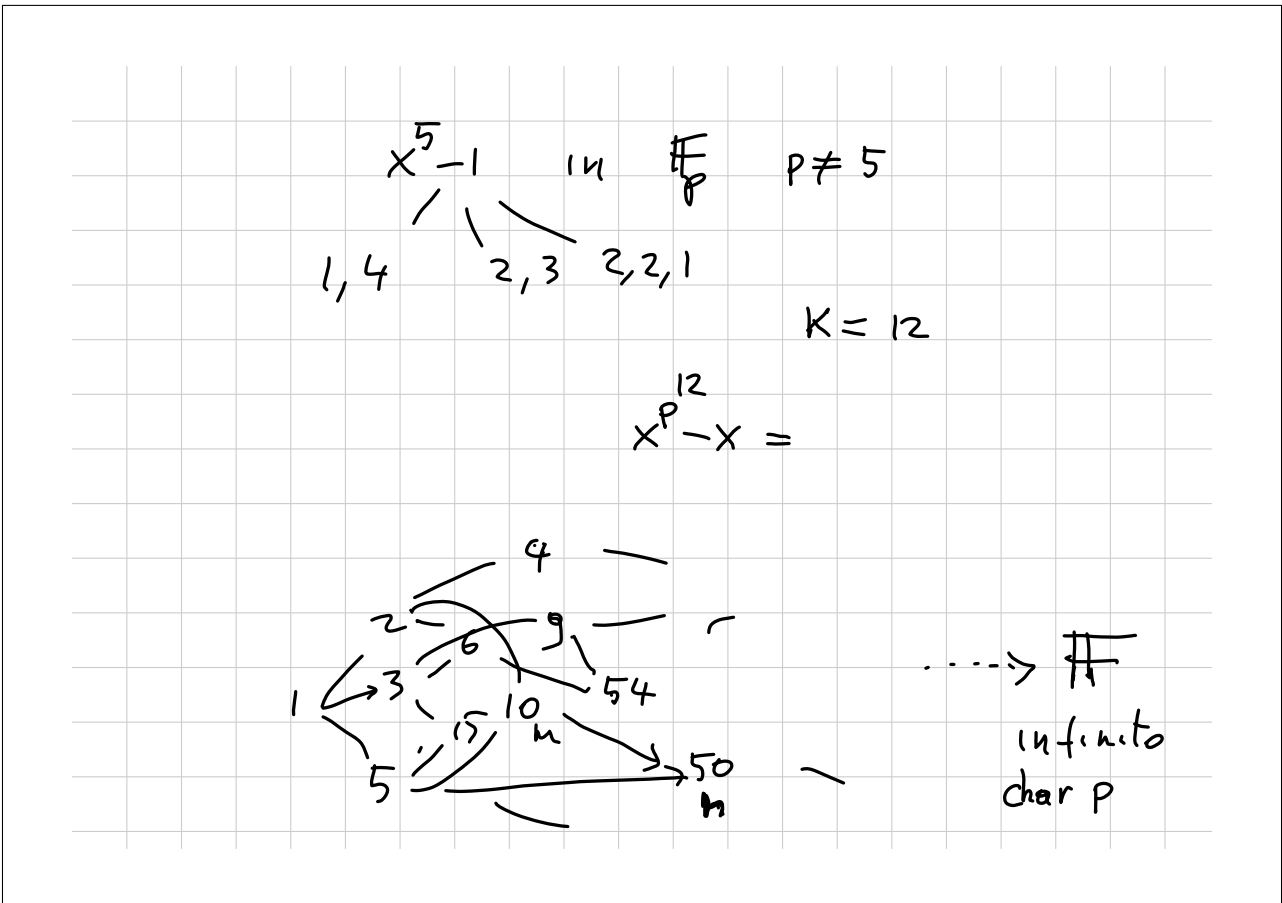 x^5 - 1 in 𝔽_p p ≠ 5
1, 4 2, 3 2, 2, 1
K = 12
x^{p^{12}} - x =
4
2 9
6
3 54
1 10
15 m
5 50
n
⋯→ 𝔽
infinito
char p